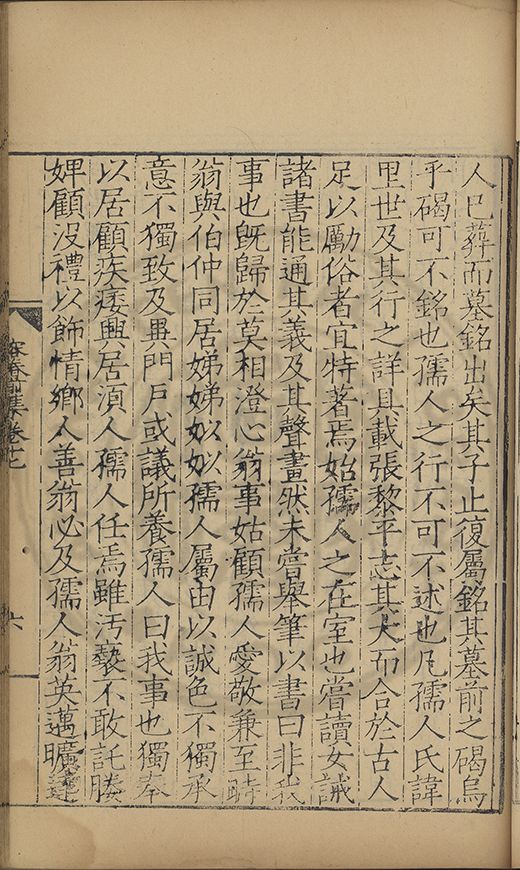 人已葬而墓銘出矣其子止復屬銘其墓前之碣烏
乎碣可不銘也孺人之行不可不述也凡孺人氏諱
里世及其行之詳具載張黎平志其大而合於古人
足以勵俗者宜特著焉始孺人之在室也嘗讀女誡
諸書能通其義及其聲畫然未嘗舉筆以書曰非我
事也既歸於莫相澄心翁事姑顧孺人愛敬兼至時
翁與伯仲同居娣娣姒姒孺人屬由以誠色不獨承
意不獨致及異門戶或議所養孺人曰我事也獨奉
以居顧疾痿興居湏人孺人任焉雖汚䙝不敢託媵
婢顧沒禮以飾情鄉人善翁必及孺人翁英邁曠達
容春前集卷十七
六